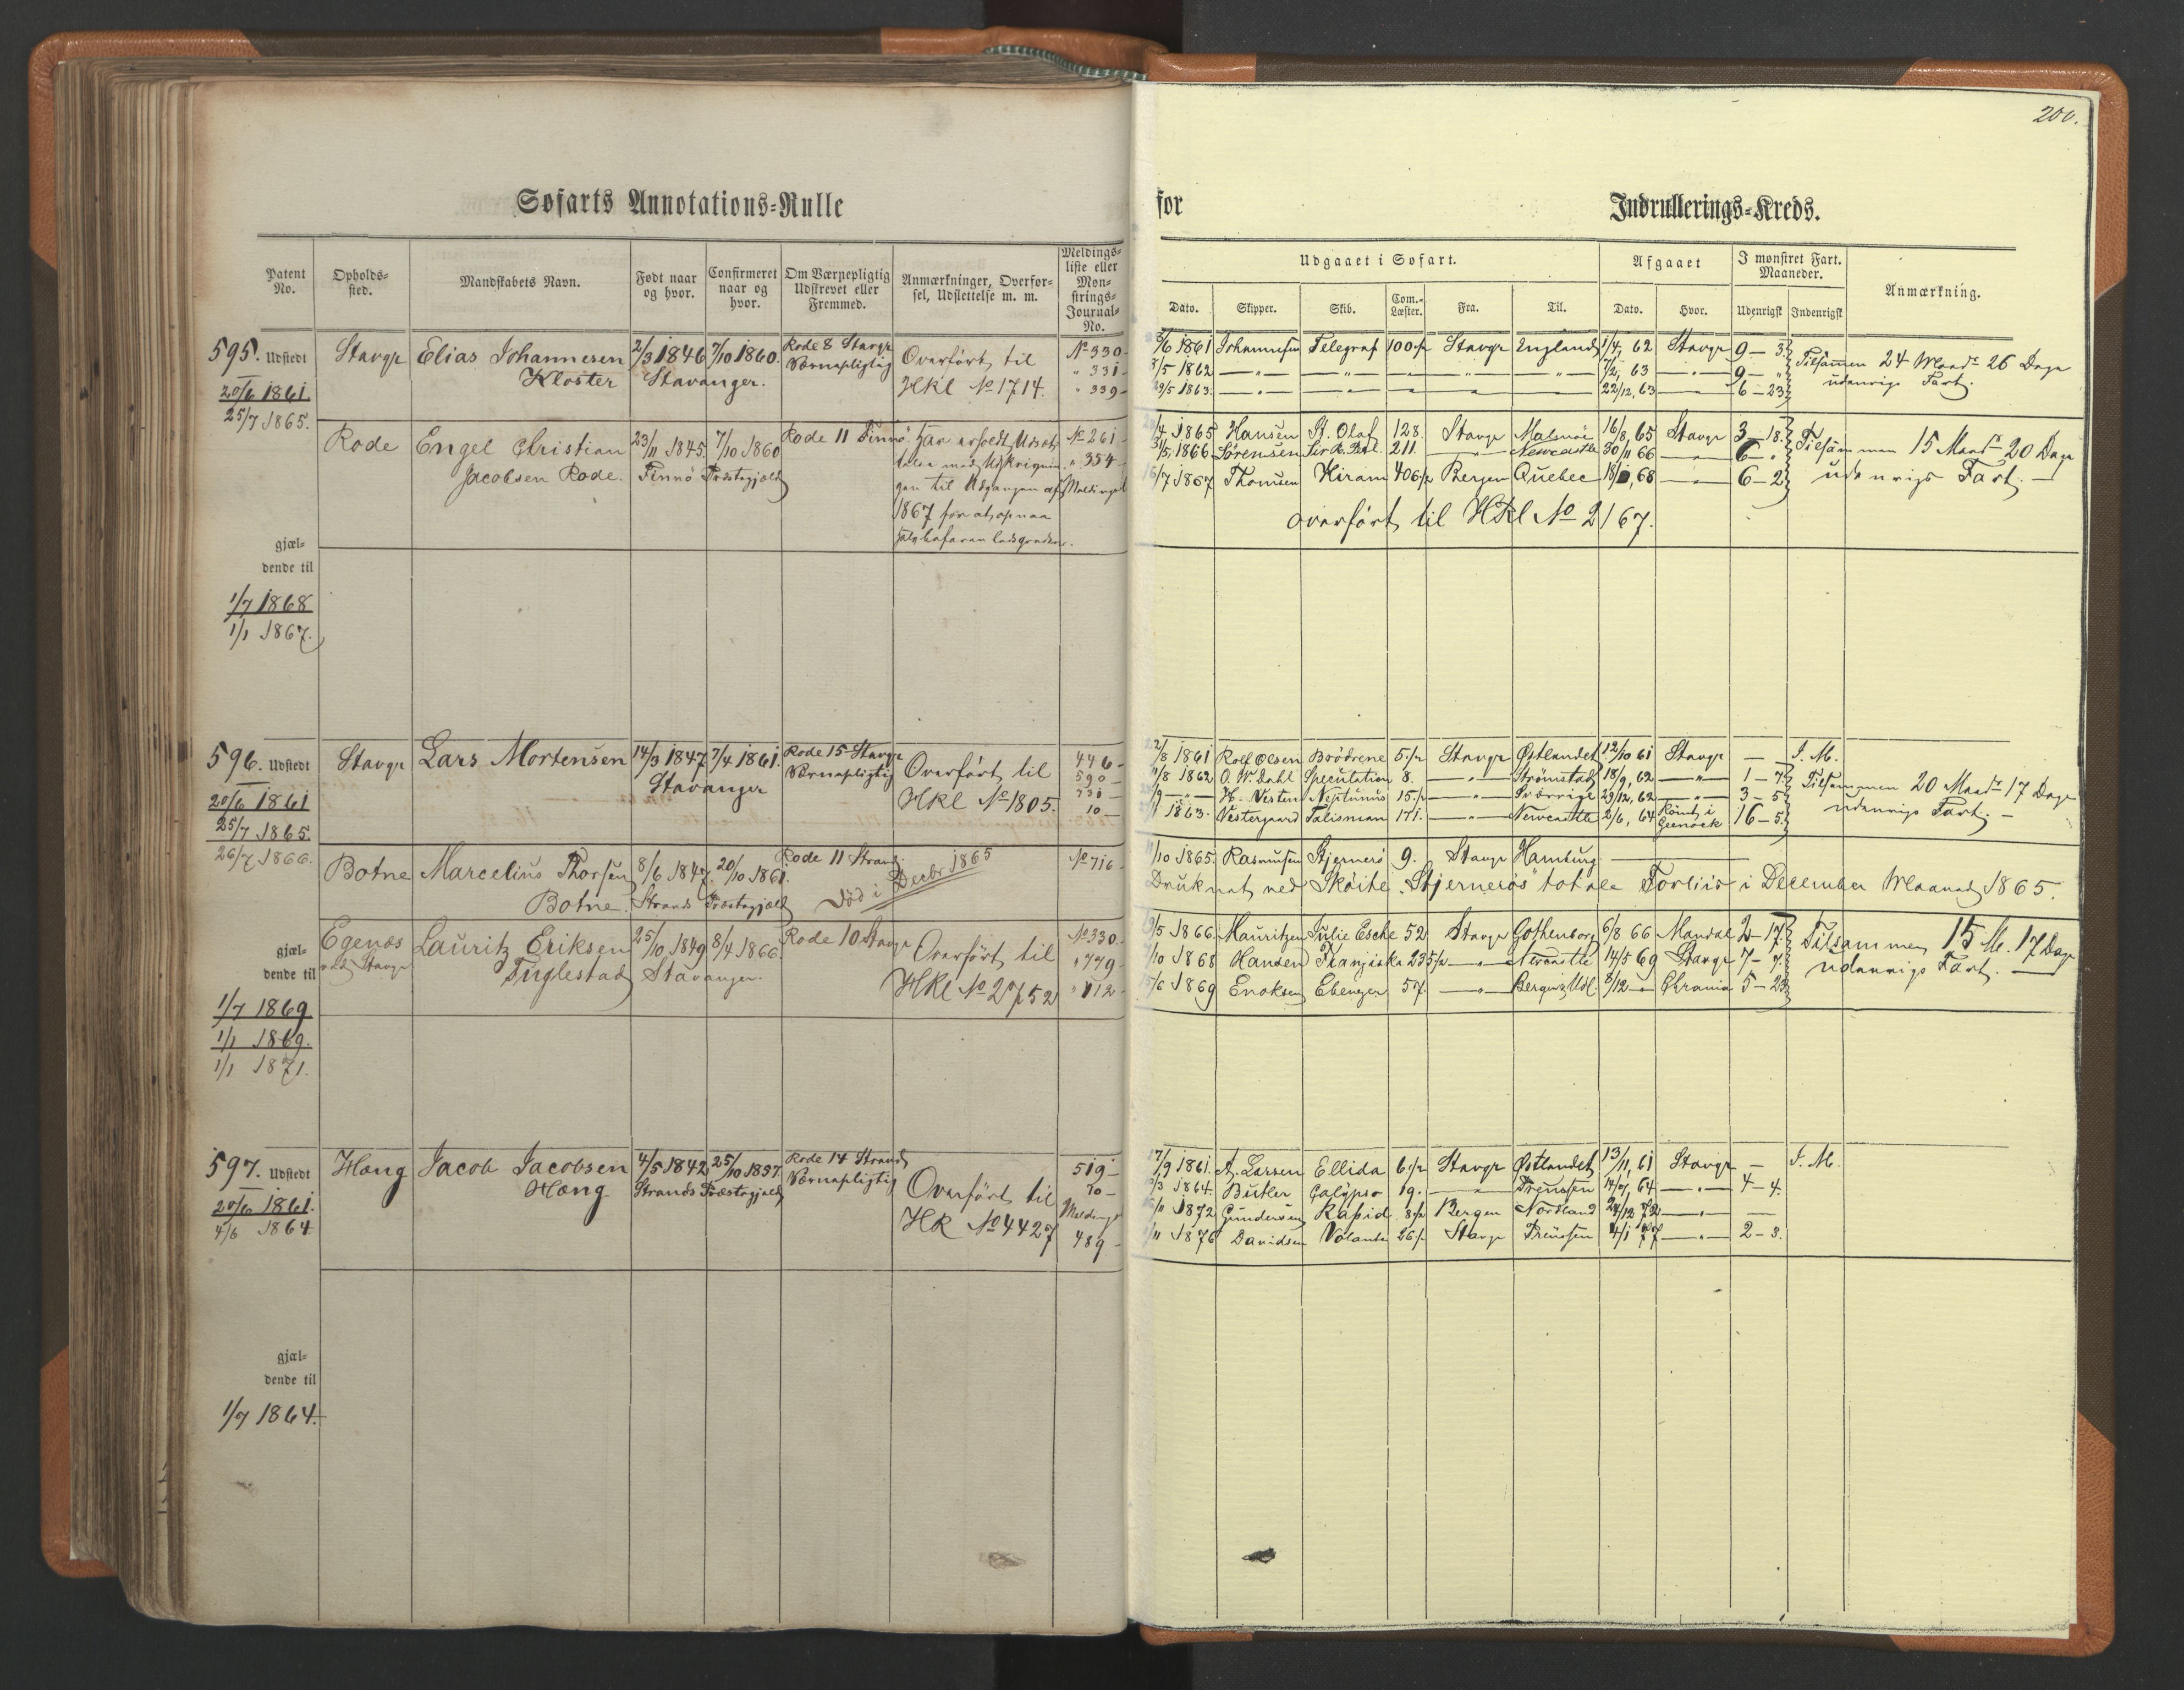 200.
Søfarts Annotations-Rulle
for
Indrullerings-Kreds.
Patent No.
Opholds-sted.
Mandskabets Navn.
Født naar og hvor.
Confirmeret naar og hvor.
Om Værnepligtig Udskrevet eller Fremmed.
Anmærkninger, Overførsel, Udslettelse m. m.
Meldings-liste eller Mønstrings-Journal-No.
Udgaaet i Søfart.
Afgaaet
I mønstret Fart. Maaneder.
Anmærkning.
Dato. Skipper. Skib. Com.-Læster. Fra. Til. Dato. Hvor. Udenrigst Indenrigst
595. Udstedt
20/6 1861.
25/7 1865.
Stavgr Elias Johannesen 2/3 1846 7/10 1860. Rode 8 Stavgr Overført til No 330
Kloster Stavanger. Værnepligtig HKl No 1714. " 331
" 339
3/6 1861 Johannesen Telegraf 100 1/2 Stavgr England 1/4, 62 Stavgr 9 – 3
3/5 1862 — " — — " — — " — — " — — " — 7/2, 63 — " — 9 – "
Tilsammen 24 Maadr 26 Dage
29/5 1863. 22/12, 63 6 – 23
udenrigs Fart.
Rode Engel Christian 23/11 1845. 7/10 1860 Rode 11 Finnö Har erholdt Udsæt- No 261
Jacobsen Rode. Finnö Præstegjæld
telse med Udskrivnin- " 354
gen til Udgangen af Meldingsl
1867 for at opnaa
4 1865 Hansen St. Olaf 128. Stavgr Malmöe 16/8, 65 Stavgr 3 – 18.
31/5 1866 Sörensen Sir R. Peel. 211. — " — Newcastle 30/11 66 — " — 6 – "
Tilsammen 15 Maadr 20 Dage
16/7 1867 Thomsen Hiram 406 1/2 Bergen Quebec 68 — " — 6 – 2
udenrigs Fart. —
overført til HKl No 2167.
gjæl-
dende til
1/7 1868
1/1 1867.
596. Udstedt
20/6 1861
25/7 1865.
26/7 1866.
Stavgr Lars Mortensen 14/3 1847 7/4 1861. Rode 15 Stavgr Overført til 446
Stavanger Værnepligtig HKl No 1805. 590
10
2/8 1861 Rolf Olsen Brödrene 5 1/2 Stavgr Østlandet 12/10 61 Stavgr — I. M.
11/8 1862 O. W. Dahl Speculation 8. — " — Strömstad 18/9, 62 — " — 1 – 7
Tilsammen 20 Maadr 17 Dage
H. Vesten Neptunus 15 1/2 — " — Sverrige 29/12, 62 — " — 3 – 5
udenrigs Fart. —
1863. Vestergaard Talisman 171. — " — Newcastle 2/6, 64 Römt i Greenock 16 – 5.
Botne Marcelius Thorsen 8/6 1847. 20/10 1861. Rode 11 Strand. No 716
Botne. Strands Præstegjæld Död i Decbr 1865
11/10 1865. Rasmusen Stjernerö 9. Stavgr Hamburg
Druknet ved Sköite "Stjernerös" totale Forliis i December Maaned 1865.
Egenæs Lauritz Eriksen 25/10 1849 8/4 1866. Rode 10 Stavgr Overført til No 330.
ved Stavgr Fuglestad Stavanger. HKl No 2752 " 779
" 112
5 1866. Mauritzen Julie Esche 52 Stavgr Gothenborg 6/8 66 Mandal 2 – 17.
1/10 1868 Hansen Franziska 235 1/2 — " — Newcastle 14/5 69 Stavgr 7 – 7.
Tilsammen 15 M. 17 Dage
5/6 1869 Enoksen Ebenezer 57. — " — 8/12 — Chrania 5 – 23
udenrigs Fart. —
gjæl-
dende til
1/7 1869
1/1 1869.
1/1 1871.
597. Udstedt
20/6 1861.
4/6 1864.
Hæng Jacob Jacobsen 4/5 1842 25/10 1857. Rode 14 Strand Overført til 519
Hæng Strands Præstegjæld Værnepligtig HK No 4427 70
Meldingsl
489
17/9 1861. A. Larsen Ellida 6 1/2 Stavgr Østlandet 13/11, 61 Stavgr — I. M.
3 1864. Butler Calypso 19. — " — Preussen 14/7, 64 — " — 4 – 4.
11 1872 Gundersen Rapid 8 1/2 Bergen Nordland 24/12 72 — " —
11 1876 Davidsen Volante 26 1/2 Stavgr Preussen 4/1 77 — " — 2 – 3.
gjæl-
dende til
1/7 1864.